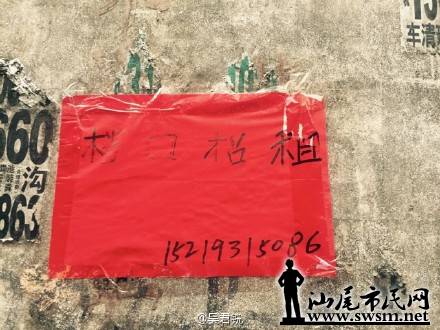 15
车清
660
沟
863
档口招租
15219315086
汕尾市民网
www.swsm.net